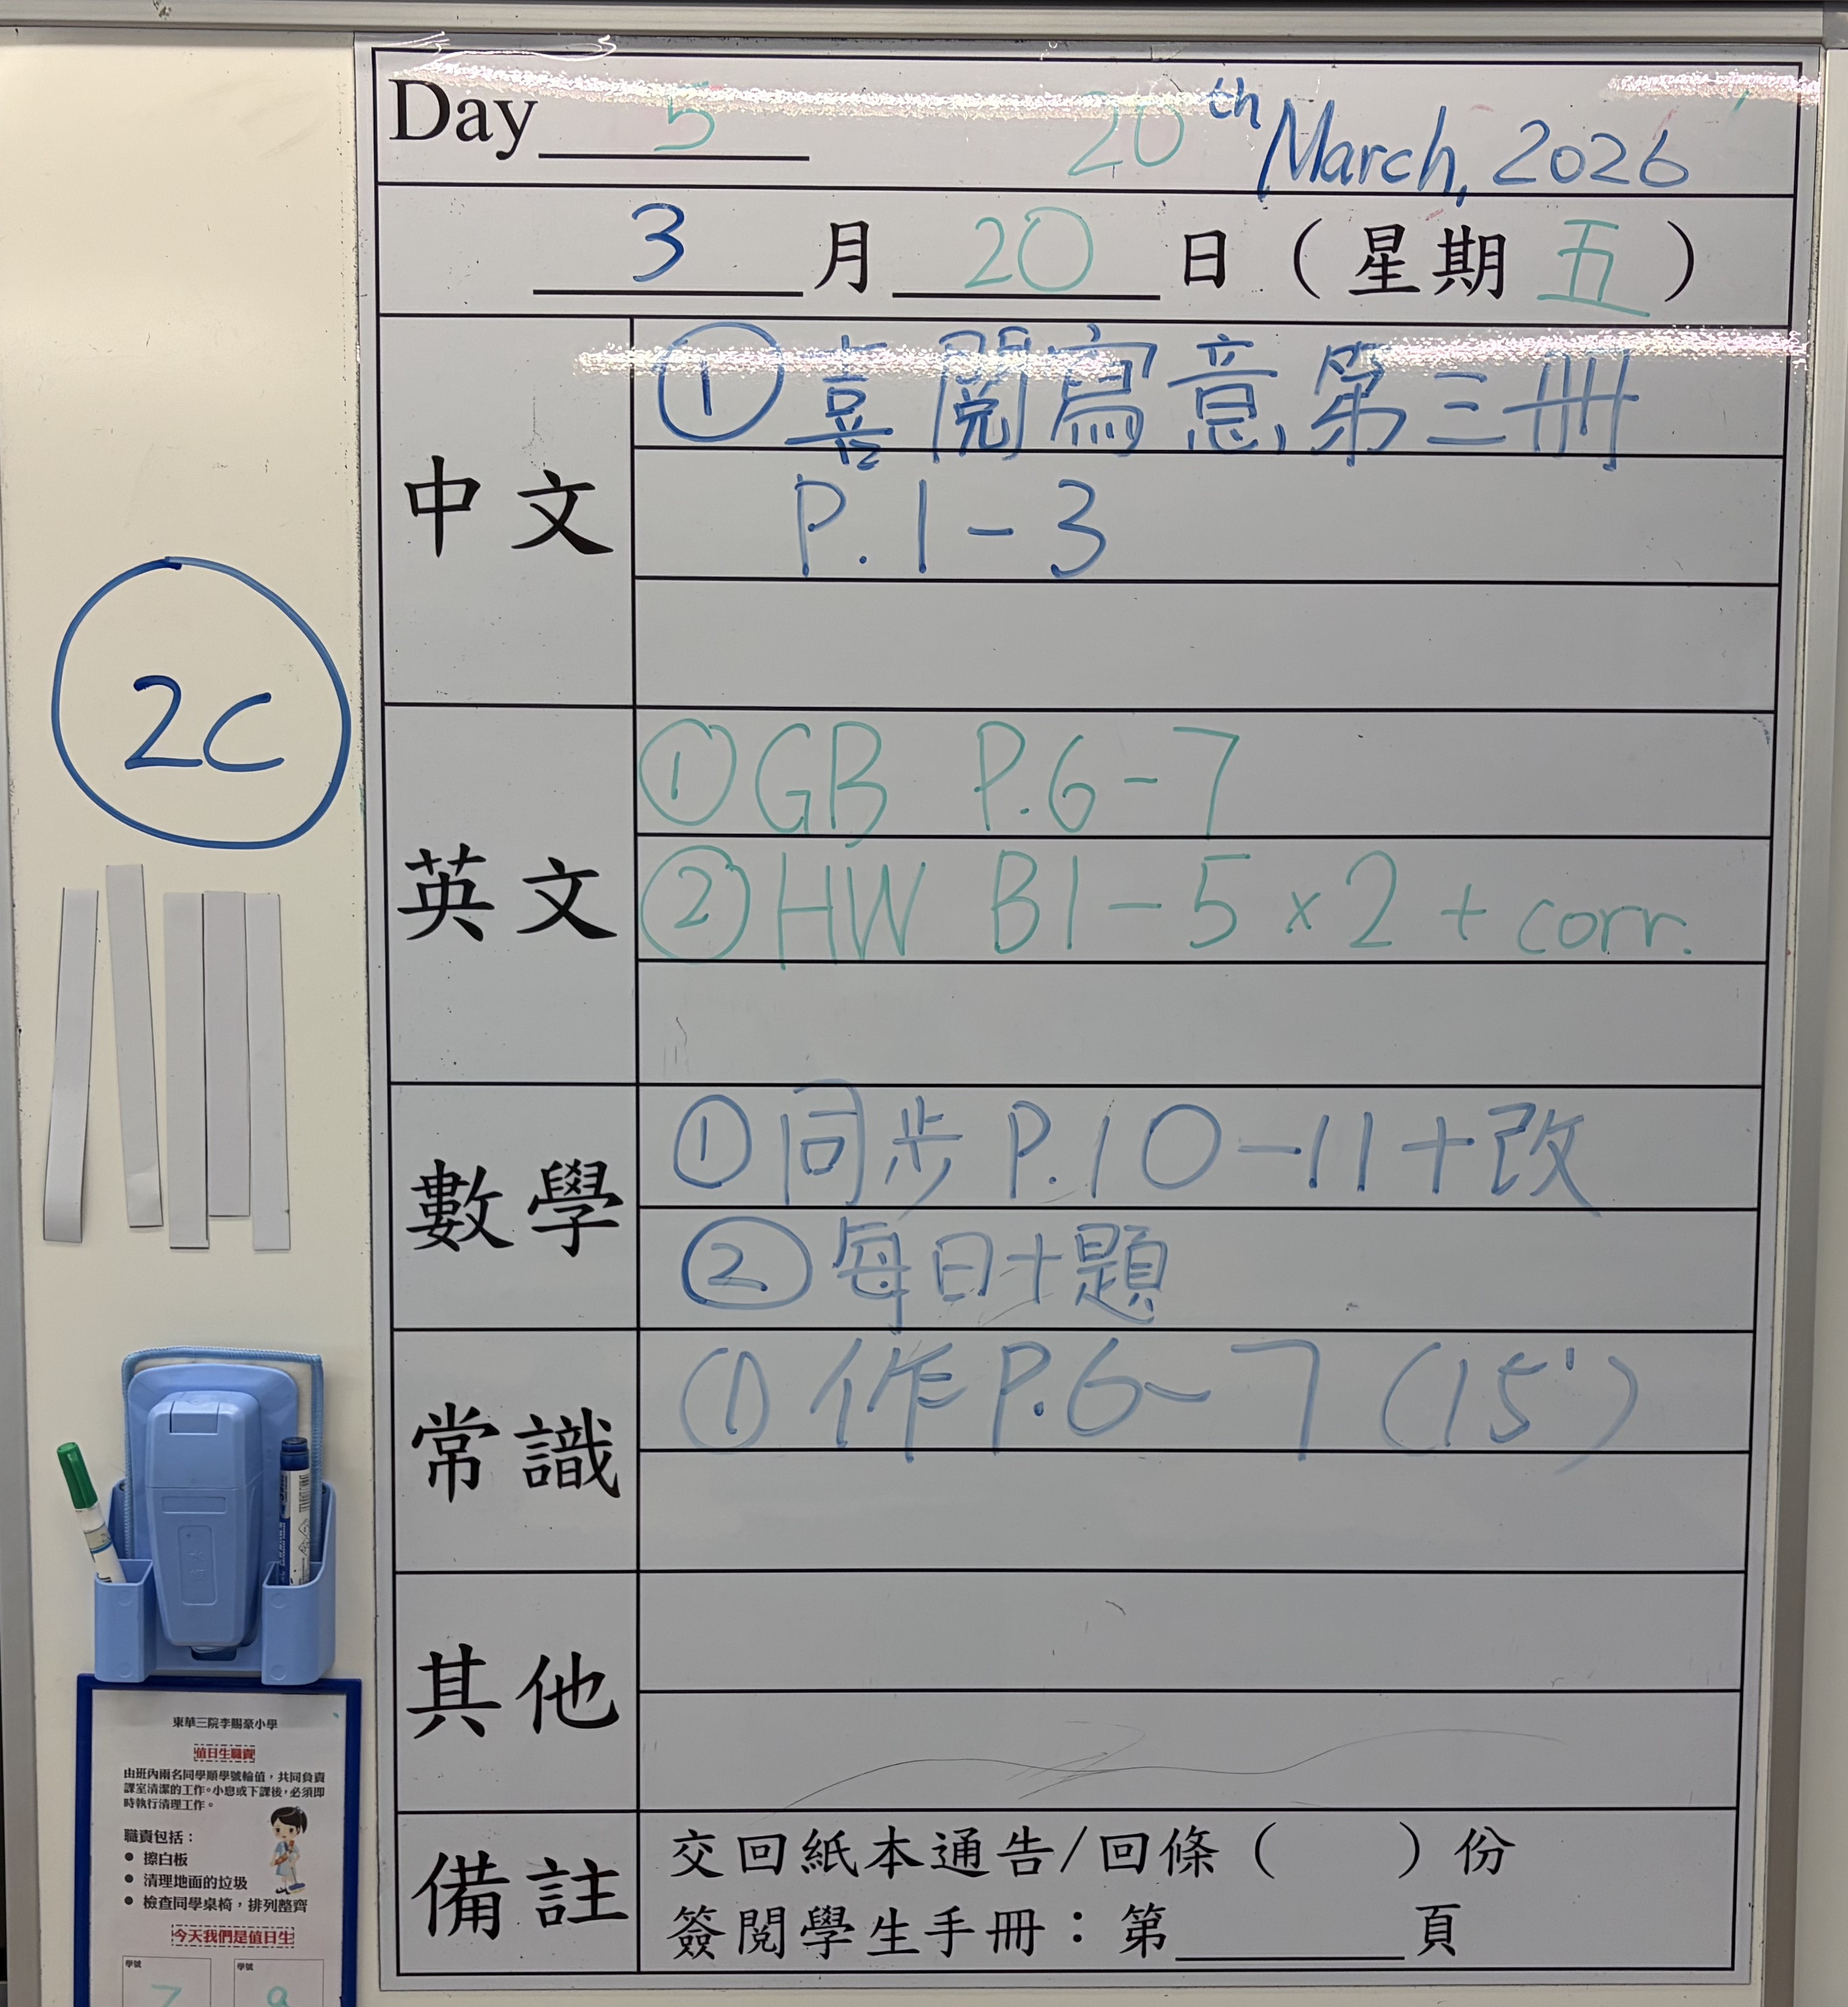 Day 5 20th March, 2026
3月20日（星期五）
中文
①喜閱寫意第三冊
P.1-3
英文
①GB P.6-7
②HW B1-5×2+corr.
數學
①同步P.10-11+改
②每日十題
常識
①作P.6-7(15')
其他
備註
交回紙本通告/回條（ ）份
簽閱學生手冊：第______頁
2C
東華三院李賜豪小學
值日生職責
由班內兩名同學順學號輪值，共同負責
課室清潔的工作。小息或下課後，必須即
時執行清理工作。
職責包括：
● 擦白板
● 清理地面的垃圾
● 檢查同學桌椅，排列整齊
今天我們是值日生
學號 學號
7 8